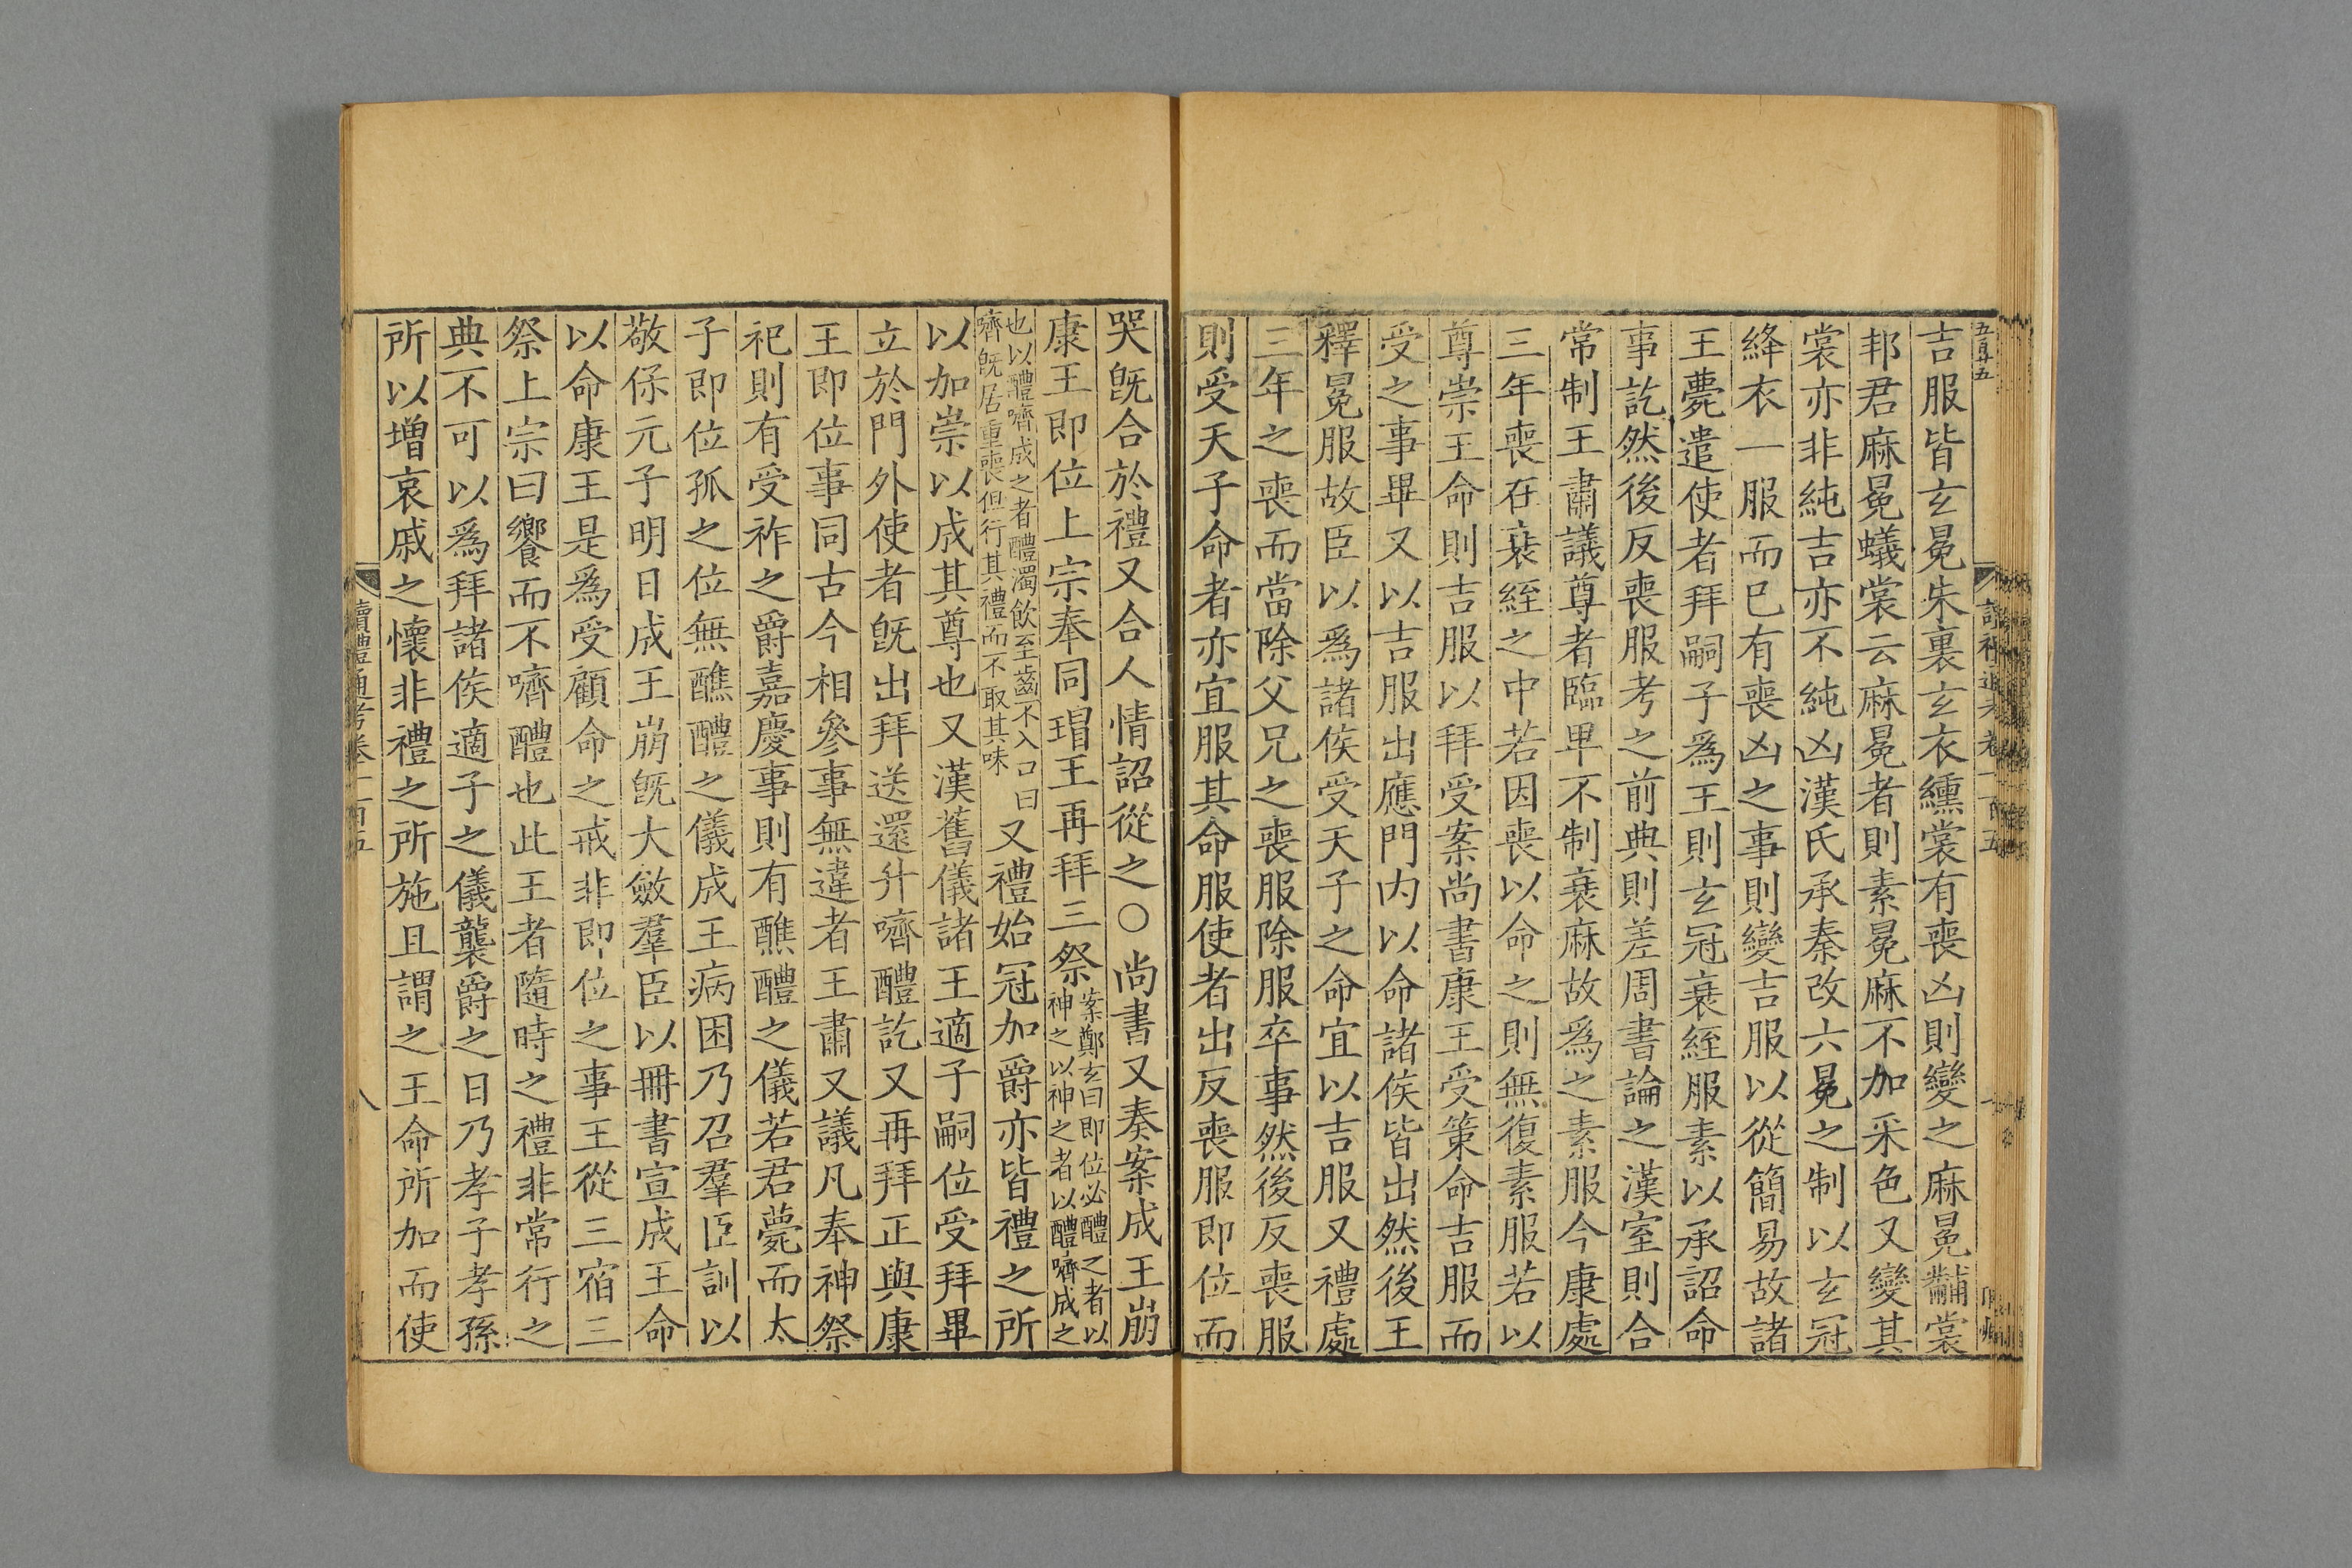 吉服皆玄冕朱裏玄衣纁裳有喪凶則變之麻冕黼裳
邦君麻冕蟻裳云麻冕者則素冕麻不加采色又變其
裳亦非純吉亦不純凶漢氏承秦改六冕之制以玄冠
絳衣一服而巳有喪凶之事則變吉服以從簡易故諸
王薨遣使者拜嗣子爲王則玄冠衰絰服素以承詔命
事訖然後反喪服考之前典則差周書論之漢室則合
常制王肅議尊者臨卑不制衰麻故爲之素服今康處
三年喪在衰絰之中若因喪以命之則無復素服若以
尊崇王命則吉服以拜受案尚書康王受策命吉服而
受之事畢又以吉服出應門内以命諸侯皆出然後王
釋冕服故臣以爲諸侯受天子之命宜以吉服又禮處
三年之喪而當除父兄之喪服除服卒事然後反喪服
則受天子命者亦宜服其命服使者出反喪服即位而
哭旣合於禮又合人情詔從之○尚書又奏案成王崩
康王即位上宗奉同瑁王再拜三祭案鄭玄曰即位必醴之者以
神之以神之者以醴嚌成之
也以醴嚌成之者醴濁飲至齒不入口曰
嚌旣居重喪但行其禮而不取其味又禮始冠加爵亦皆禮之所
以加崇以成其尊也又漢舊儀諸王適子嗣位受拜畢
立於門外使者旣出拜送還升嚌醴訖又再拜正與康
王即位事同古今相參事無違者王肅又議凡奉神祭
祀則有受祚之爵嘉慶事則有醮醴之儀若君薨而太
子即位孤之位無醮醴之儀成王病困乃召羣臣訓以
敬保元子明日成王崩旣大斂羣臣以冊書宣成王命
以命康王是爲受顧命之戒非即位之事王從三宿三
祭上宗曰饗而不嚌醴也此王者隨時之禮非常行之
典不可以爲拜諸侯適子之儀襲爵之日乃孝子孝孫
所以增哀戚之懷非禮之所施且謂之王命所加而使
讀禮通考卷一百五
八